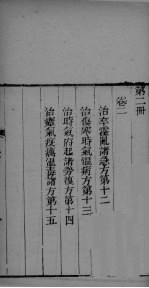 第二冊
卷二
治卒霍亂諸急方第十二
治傷寒時氣溫病方第十三
治時氣病起諸勞復方第十四
治瘴氣疫癘溫毒諸方第十五